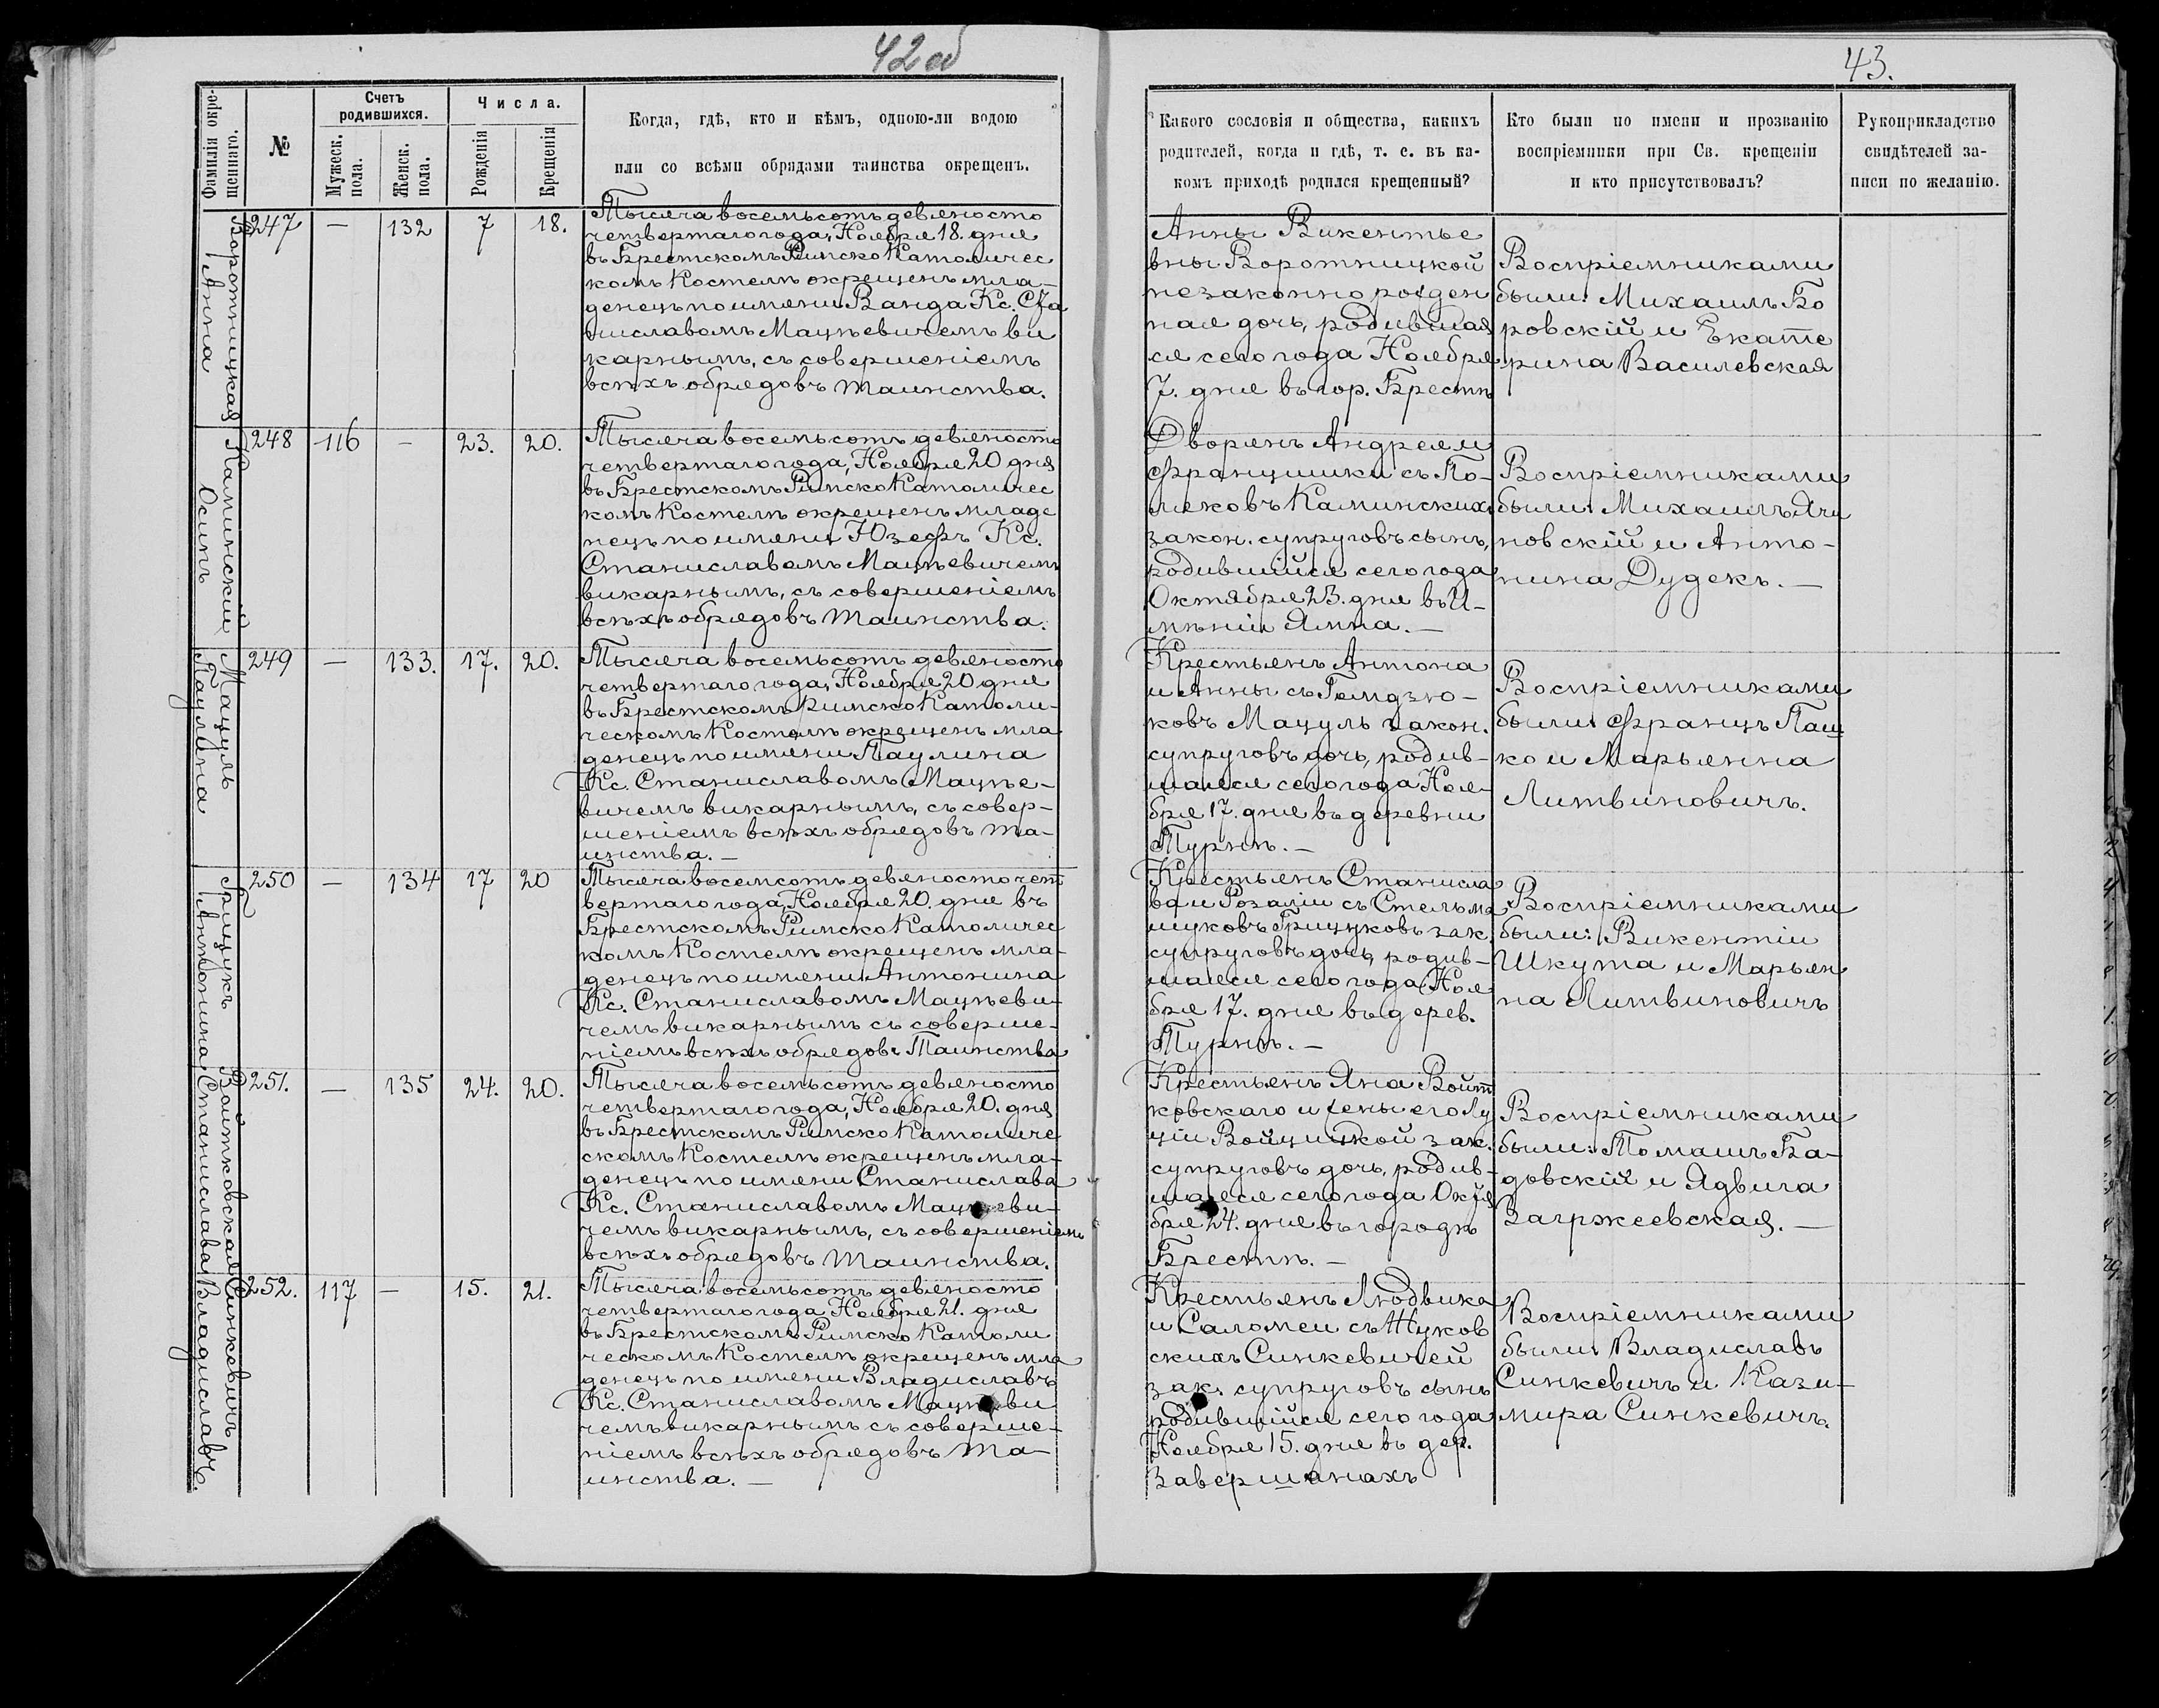 42 об
43.
Фамилія окрещеннаго.
№
Счетъ родившихся.
Мужеск. пола.
Женск. пола.
Числа.
Рожденія
Крещенія
Когда, гдѣ, кто и кѣмъ, одною-ли водою
или со всѣми обрядами таинства окрещенъ.
Какого сословія и общества, какихъ
родителей, когда и гдѣ, т. е. въ ка-
комъ приходѣ родился крещенный?
Кто были по имени и прозванію
воспріемники при Св. крещеніи
и кто присутствовалъ?
Рукоприкладство
свидѣтелей за-
писи по желанію.
Воротницкая
Анна
247 — 132 7 18.
Тысяча восемьсотъ девяносто
четвертаго года, Ноября 18. дня
въ Брестскомъ Римско Католичес
комъ Костелѣ окрещенъ мла-
денецъ по имени Ванда Кс. Ста
ниславомъ Мацѣевичемъ ви
карнымъ, съ совершеніемъ
всѣхъ обрядовъ таинства.
Анны Викентье
вны Воротницкой
незаконно рожден
ная дочь, родившая
ся сего года Ноября
7. дня въ гор. Брестѣ
Воспріемниками
были: Михаилъ Бо
ровскій и Екате
рина Василевская
Каминскій
Осипъ
248 116 — 23. 20.
Тысяча восемьсотъ девяносто
четвертаго года, Ноября 20 дня
въ Брестскомъ Римско Католичес
комъ Костелѣ окрещенъ младе
нецъ по имени Юзефъ Кс.
Станиславомъ Мацѣевичемъ
викарнымъ, съ совершеніемъ
всѣхъ обрядовъ таинства.
Дворянъ Андрея и
Францишки съ По-
ляковъ Каминскихъ
закон. супруговъ сынъ,
родившійся сего года
Октября 23. дня въ И-
мѣніи Ямна. —
Воспріемниками
были: Михаилъ Ячи
новскій и Анто-
нина Дудекъ. —
Мацуль
Паулина
249 — 133. 17. 20.
Тысяча восемьсотъ девяносто
четвертаго года, Ноября 20 дня
въ Брестскомъ Римско Католи-
ческомъ Костелѣ окрещенъ мла
денецъ по имени Паулина
Кс. Станиславомъ Мацѣе-
вичемъ викарнымъ, съ совер-
шеніемъ всѣхъ обрядовъ та-
инства. —
Крестьянъ Антона
и Анны съ Гемдзю-
ковъ Мацуль закон.
супруговъ дочь, родив-
шаяся сего года Ноя-
бря 17. дня въ деревни
Турнѣ. —
Воспріемниками
были: Францъ Паш
ко и Марьянна
Литвиновичъ.
Грицукъ
Антонина
250 — 134 17 20
Тысяча восемсотъ девяносто чет
вертаго года, Ноября 20. дня въ
Брестскомъ Римско Католичес
комъ Костелѣ окрещенъ мла-
денецъ по имени Антонина
Кс. Станиславомъ Мацѣеви-
чемъ викарнымъ съ соверше-
ніемъ всѣхъ обрядовъ Таинства
Крестьянъ Станисла
ва и Розаліи съ Стельма
шуковъ Грицуковъ зак.
супруговъ дочь, родив-
шаяся сего года Ноя
бря 17. дня въ дерев.
Турнѣ. —
Воспріемниками
были: Викентій
Шкута и Марьян
на Литвиновичъ
Войтковская
Станислава
251. — 135 24. 20.
Тысяча восемьсотъ девяносто
четвертаго года, Ноября 20. дня
въ Брестскомъ Римско Католиче
скомъ Костелѣ окрещенъ мла-
денецъ по имени Станислава
Кс. Станиславомъ Мацѣеви-
чемъ викарнымъ, съ совершеніемъ
всѣхъ обрядовъ таинства.
Крестьянъ Яна Войт
ковскаго и жены его Лу
ціи Войцицкой зак.
супруговъ дочь, родив-
шаяся сего года Октя
бря 24. дня въ городѣ
Брестѣ. —
Воспріемниками
были: Томашъ Ба-
довскій и Ядвига
Загржеевская. —
Синкевичъ
Владиславъ.
252. 117 — 15. 21.
Тысяча восемьсотъ девяносто
четвертаго года Ноября 21. дня
въ Брестскомъ Римско Католи
ческомъ Костелѣ окрещенъ мла
денецъ по имени Владиславъ
Кс. Станиславомъ Мацѣеви
чемъ викарнымъ съ соверше-
ніемъ всѣхъ обрядовъ та-
инства. —
Крестьянъ Людвика
и Саломеи съ Жуков
скихъ Синкевичей
зак. супруговъ сынъ
родившійся сего года
Ноября 15. дня въ дер.
Завершанахъ
Воспріемниками
были: Владиславъ
Синкевичъ и Кази-
мира Синкевичъ.